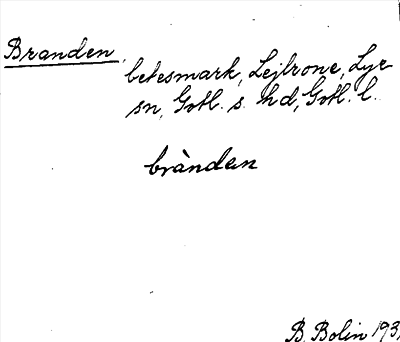 Branden,
betesmark, Lejlrone, Lye
sn, Gotl. s. hd, Gotl. l.
brànden
B. Bolin 193